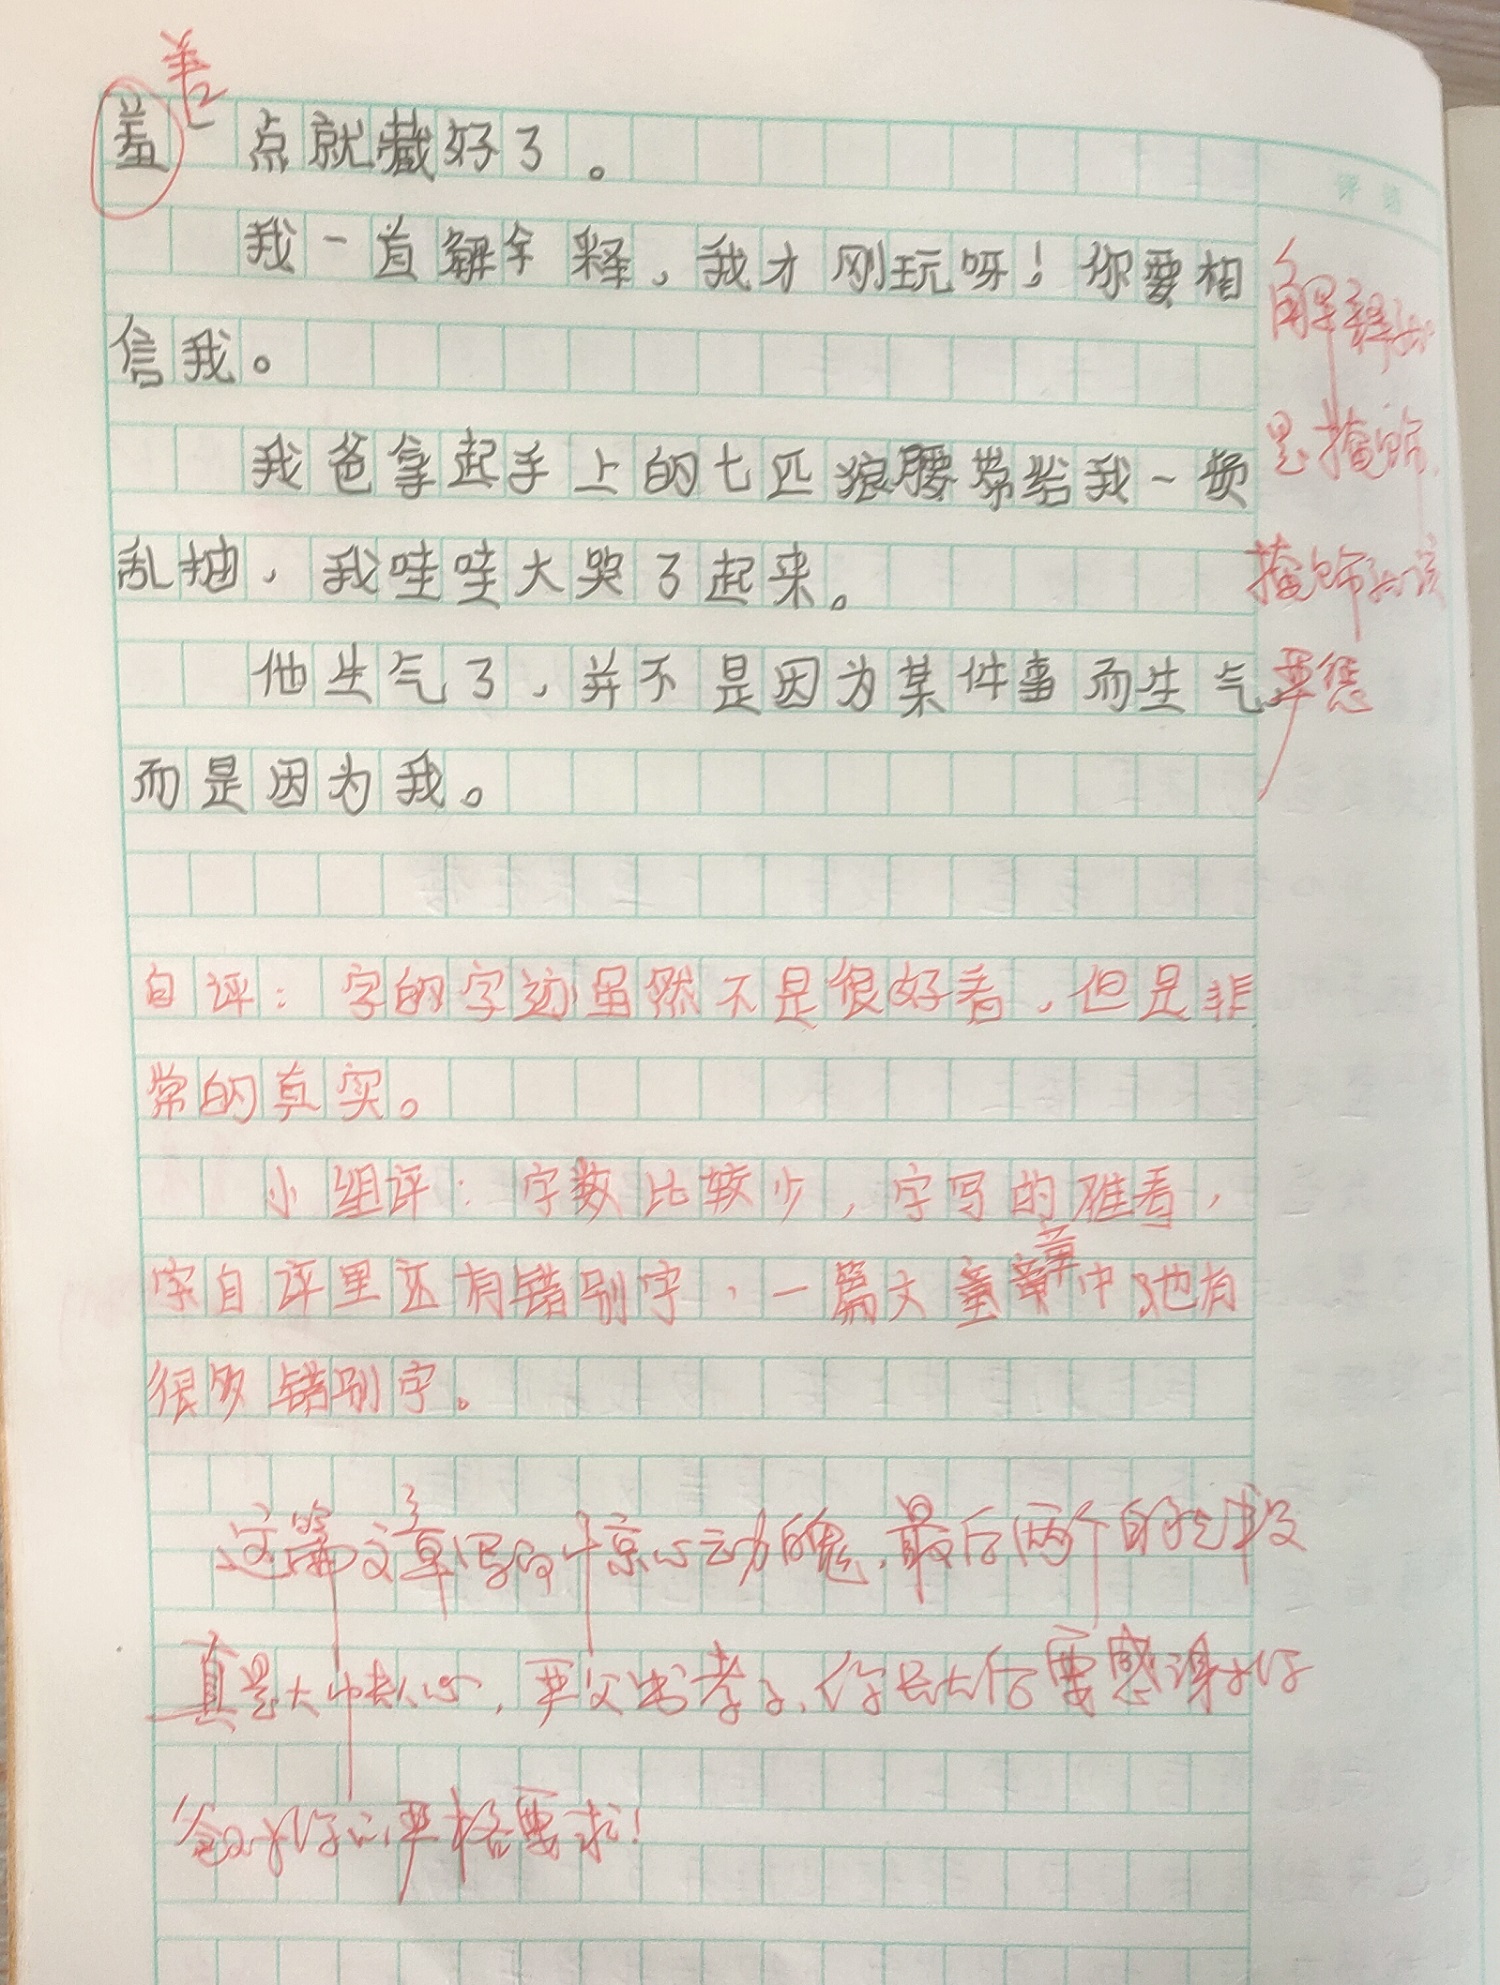 差
羞一点就藏好了。
评语
我一直解释，我才刚玩呀！你要相
信我。
我爸拿起手上的七匹狼腰带给我一顿
乱抽，我哇哇大哭了起来。
他生气了，并不是因为某件事而生气
而是因为我。
解释就
是掩饰
掩饰就该
严惩
自评：字的字迹虽然不是很好看，但是非
常的真实。
小组评：字数比较少，字写的难看，
字自评里还有错别字，一篇文章中也有
很多错别字。
这篇文章写得惊心动魄，最后两个自然段
真是大快人心，严父出孝子，你长大后要感谢你
爸对你的严格要求！